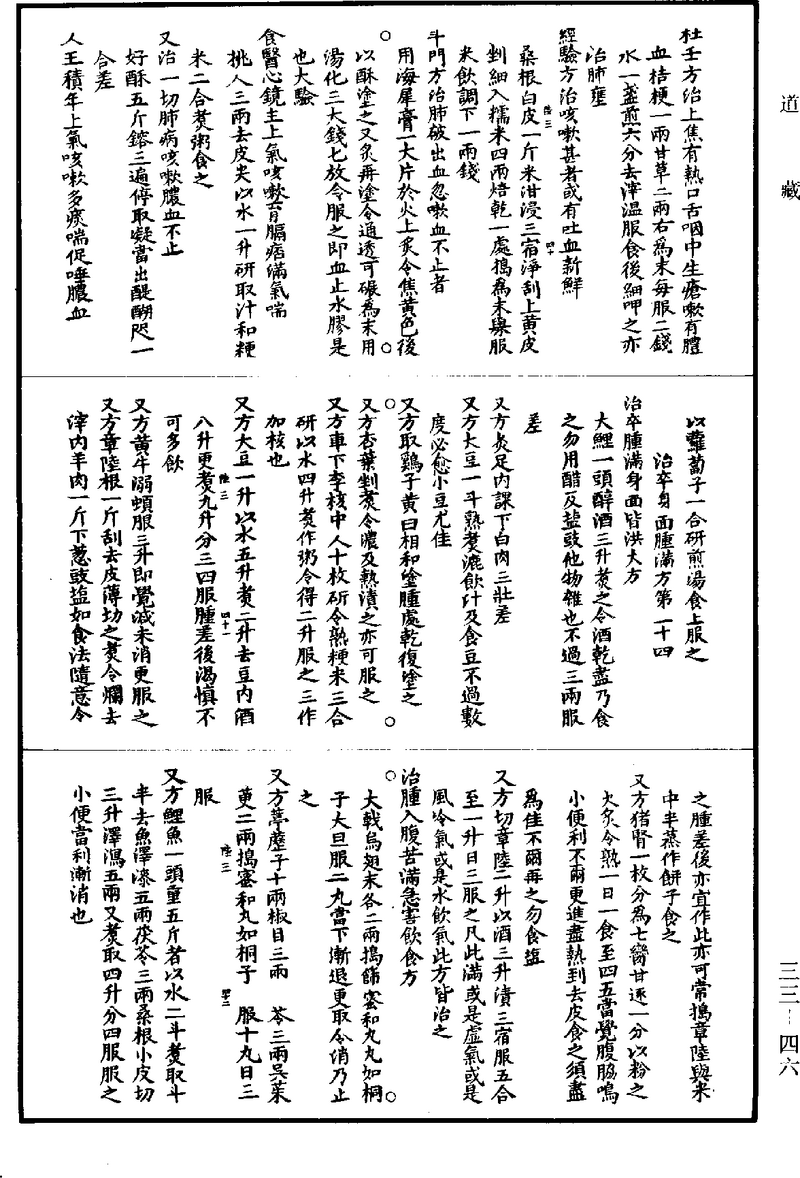 道藏
三三—四六
杜壬方治上焦有熱口舌咽中生瘡嗽有膿
血桔梗一兩甘草二兩右為末每服二錢
水一盞煎六分去滓温服食後細呷之亦
治肺壅
經驗方治咳嗽甚者或有吐血新鮮
桑根白皮一斤米泔浸三宿淨刮上黃皮
剉細入糯米四兩焙乾一處搗為末每服
米飲調下一兩錢
斗門方治肺破出血忽嗽血不止者
用海犀膏一大片於火上炙令焦黃色後
以酥塗之又炙再塗令通透可碾為末用
湯化三大錢匕放令服之即血止水膠是
也大驗
食醫心鏡主上氣咳嗽胷膈痞滿氣喘
桃人三兩去皮尖以水一升研取汁和粳
米二合煑粥食之
又治一切肺病咳嗽膿血不止
好酥五斤鎔三遍停取凝當出醍醐咫一
合差
人王積年上氣咳嗽多痰喘促唾膿血
以蘿蔔子一合研煎湯食上服之
治卒身面腫滿方第二十四
治卒腫滿身面皆洪大方
大鯉一頭醇酒三升煑之令酒乾盡乃食
之勿用醋及鹽豉他物雜也不過三兩服
差
又方灸足內踝下白肉三壯差
又方大豆一斗熟煑漉飲汁及食豆不過數
度必愈小豆尤佳
又方取鷄子黃白相和塗腫處乾復塗之
又方杏葉剉煑令濃及熱漬之亦可服之
又方車下李核中人十枚研令熟粳米三合
研以水四升煑作粥令得二升服之三作
加核也
又方大豆一升以水五升煑二升去豆內酒
八升更煑九升分三四服腫差後渴慎不
可多飲
又方黃牛溺頓服三升即覺減未消更服之
又方章陸根一斤刮去皮薄切之煑令爛去
滓內羊肉一斤下葱豉鹽如食法隨意令
之腫差後亦宜作此亦可常搗章陸與米
中半蒸作餅子食之
又方猪腎一枚分為七臠甘遂一分以粉之
火炙令熟一日一食至四五當覺腹脇鳴
小便利不爾更進盡熟剝去皮食之須盡
為佳不爾再之勿食鹽
又方切章陸二升以酒三升漬三宿服五合
至一升日三服之凡此滿或是虛氣或是
風冷氣或是水飲氣此方皆治之
治腫入腹苦滿急害飲食方
大戟烏翅末各二兩搗篩蜜和丸丸如桐
子大旦服二丸當下漸退更取令消乃止
之
又方葶藶子十兩椒目三兩 苓三兩吳茱
萸二兩搗蜜和丸如桐子 服十丸日三
服
又方鯉魚一頭重五斤者以水二斗煑取斗
半去魚澤漆五兩茯苓三兩桑根小皮切
三升澤瀉五兩又煑取四升分四服服之
小便當利漸消也
陸三
四十
陸三
四十一
陸三